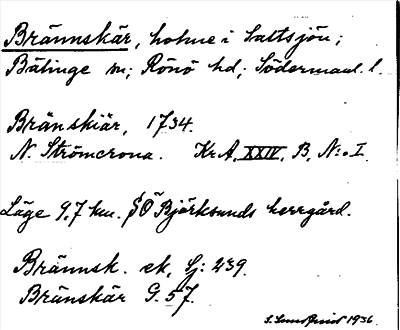 Brännskär, holme i Saltsjön;
Bälinge sn; Rönö hd; Södermanl. l.
Bränskiär, 1734.
N. Strömcrona. Kr.A. XXIV, B, N:o I.
Läge 9,7 km. SÖ Björksunds herrgård.
Brännsk. ek, Sj: 239.
Bränskär G. 57.
1936